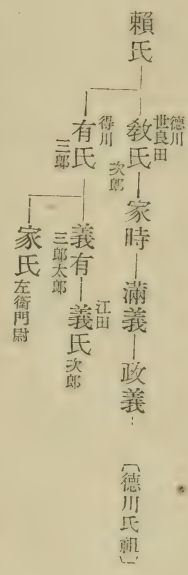 賴氏
德川
世良田
敎氏
次郎
家時
滿義
政義…
〔德川氏祖〕
得川
有氏
三郎
義有
三郎太郎
江田
義氏 次郎
家氏 左衞門尉